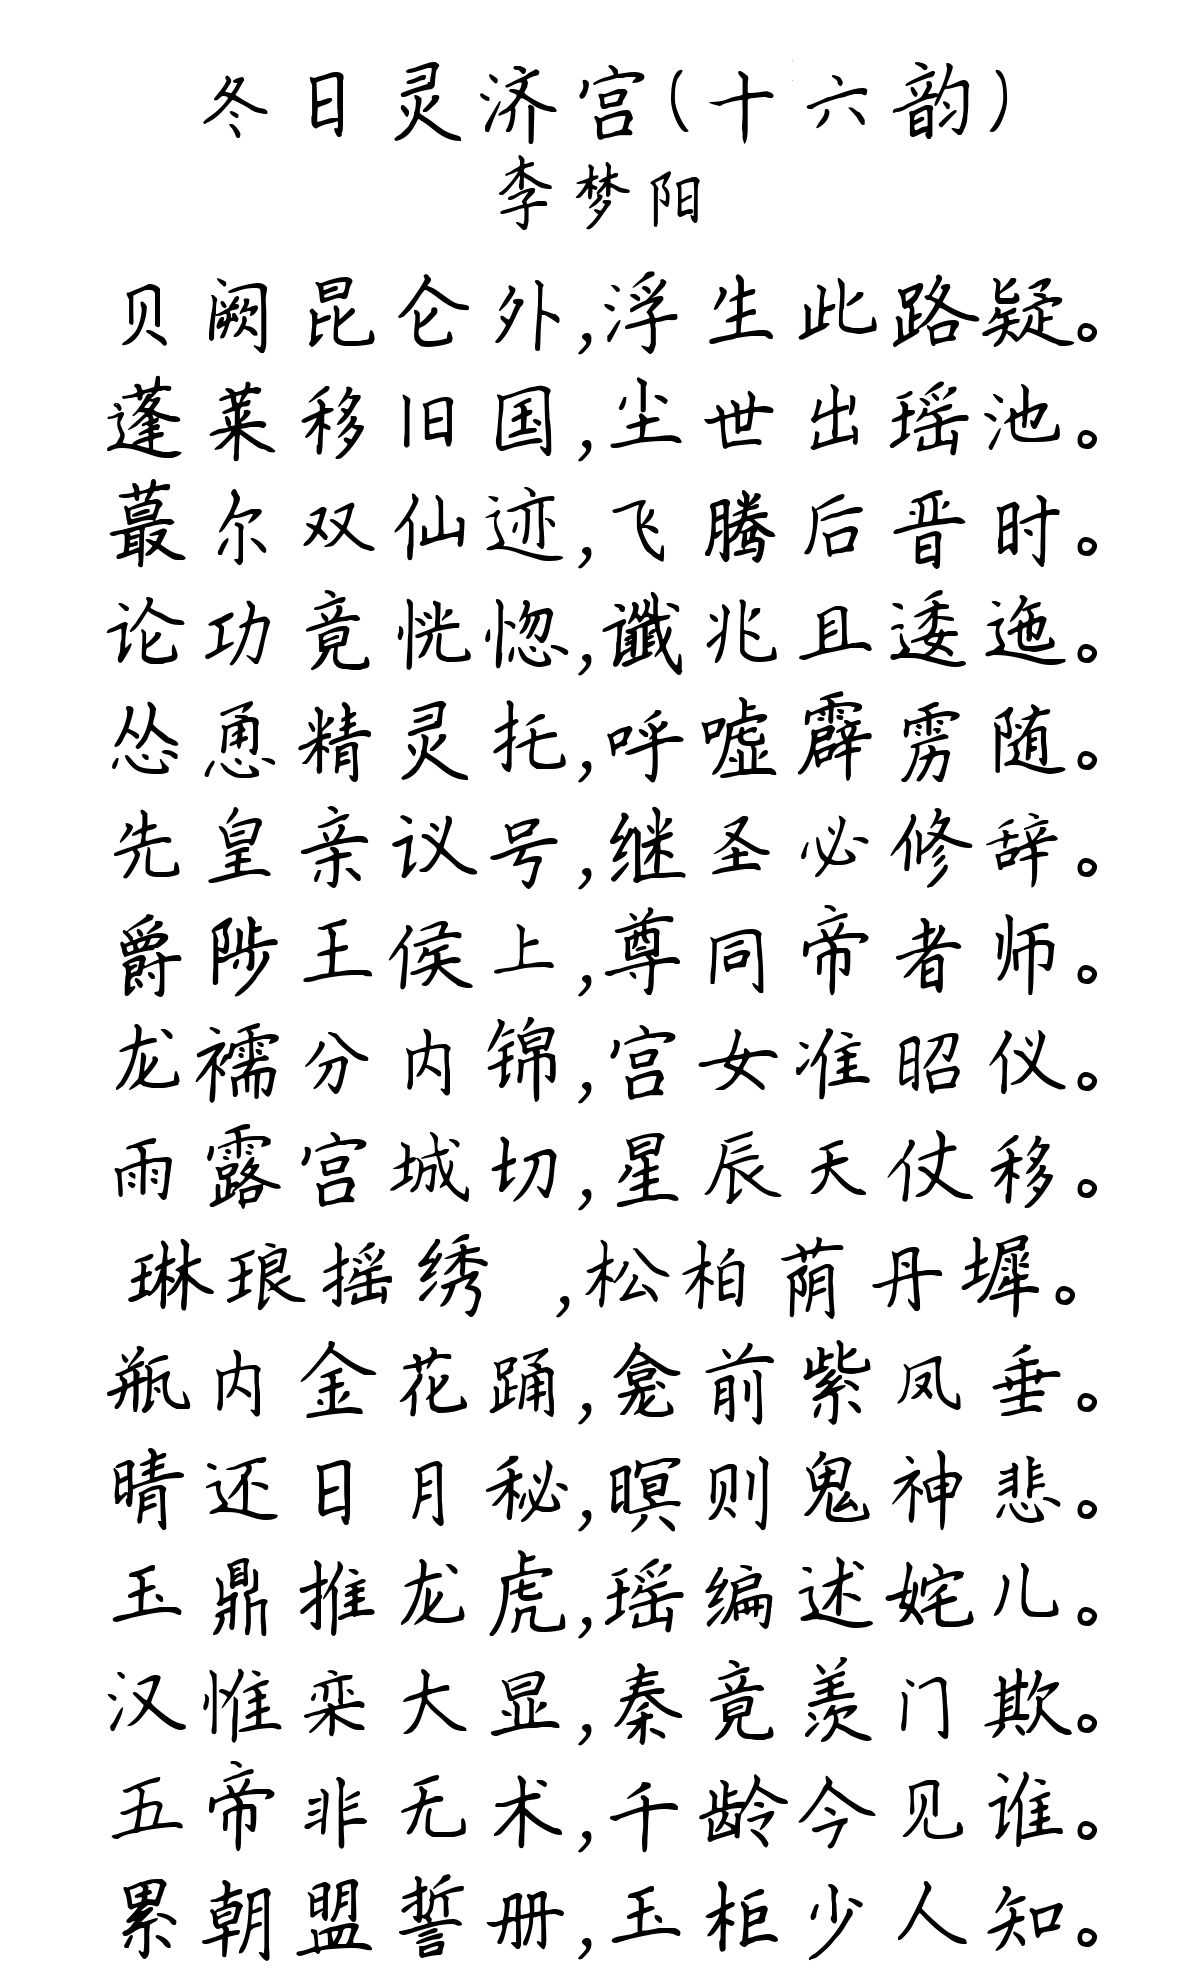 冬日灵济宫(十六韵)
李梦阳
贝阙昆仑外,浮生此路疑。
蓬莱移旧国,尘世出瑶池。
蕞尔双仙迹,飞腾后晋时。
论功竟恍惚,谶兆且逶迤。
怂恿精灵托,呼嘘霹雳随。
先皇亲议号,继圣必修辞。
爵陟王侯上,尊同帝者师。
龙襦分内锦,宫女准昭仪。
雨露宫城切,星辰天仗移。
琳琅摇绣 ,松柏荫丹墀。
瓶内金花踊,龛前紫凤垂。
晴还日月秘,暝则鬼神悲。
玉鼎推龙虎,瑶编述姹儿。
汉惟栾大显,秦竟羡门欺。
五帝非无术,千龄今见谁。
累朝盟誓册,玉柜少人知。